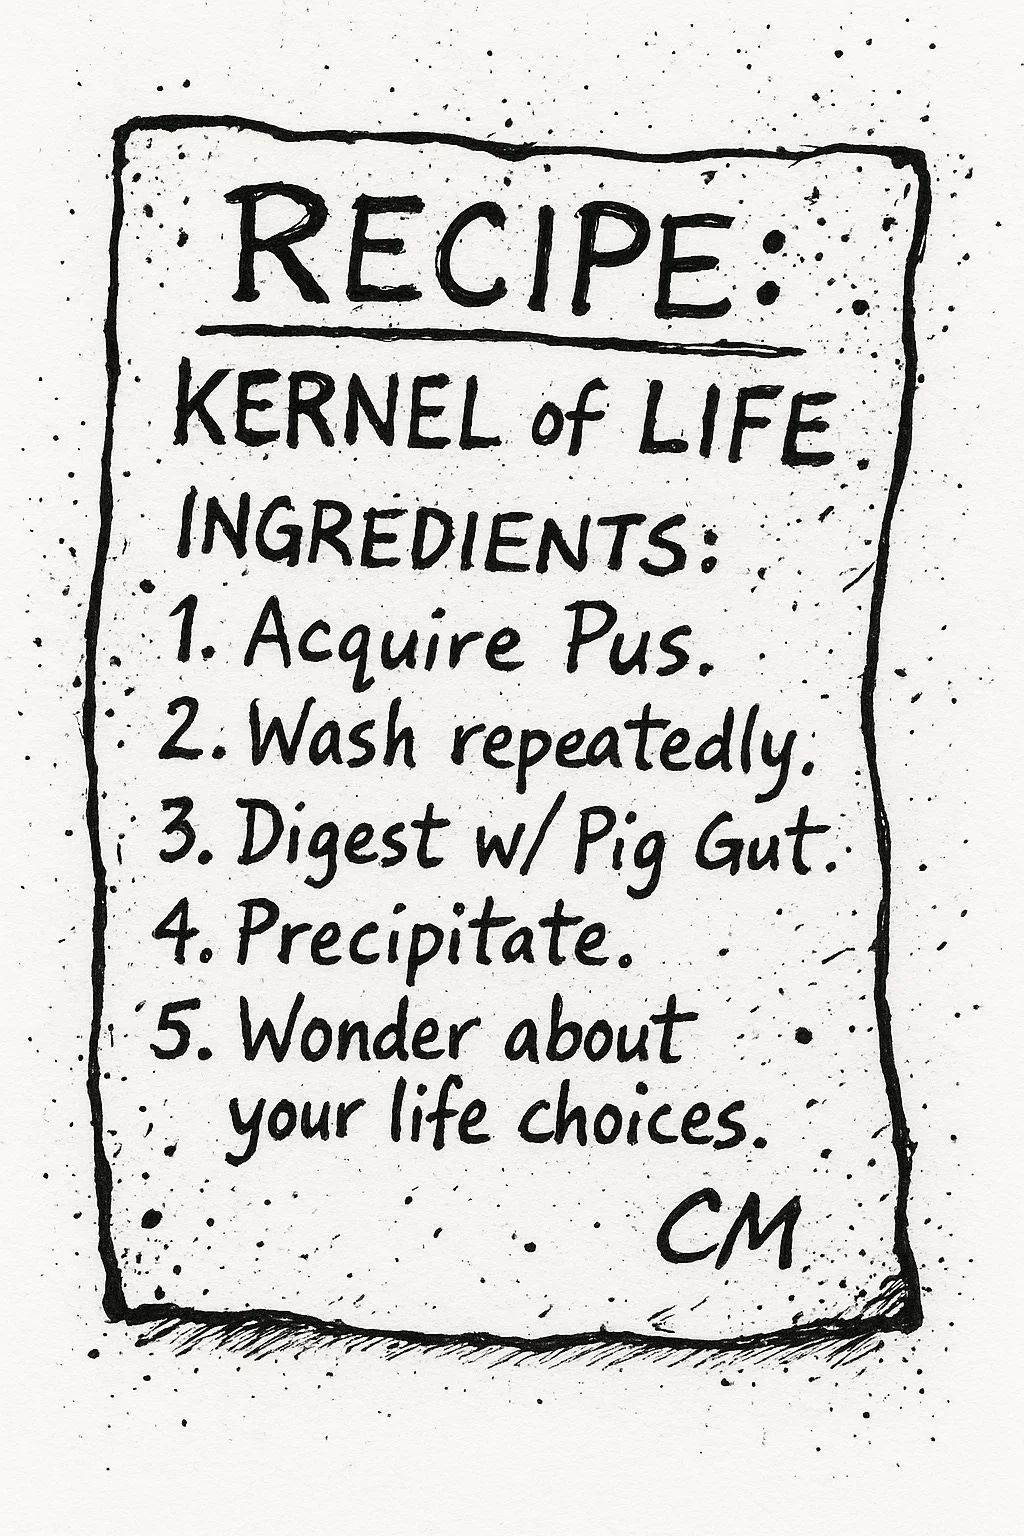 RECIPE:
KERNEL of LIFE.
INGREDIENTS:
1. Acquire Pus.
2. Wash repeatedly.
3. Digest w/ Pig Gut.
4. Precipitate.
5. Wonder about
your life choices.
CM